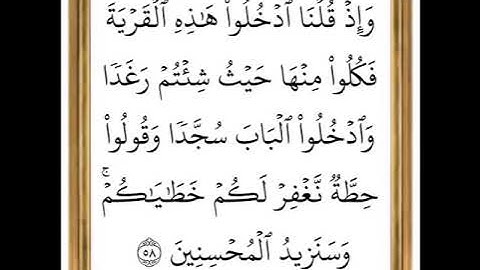 وَإِذۡ قُلۡنَا ٱدۡخُلُواْ هَٰذِهِ ٱلۡقَرۡيَةَ
فَكُلُواْ مِنۡهَا حَيۡثُ شِئۡتُمۡ رَغَدٗا
وَٱدۡخُلُواْ ٱلۡبَابَ سُجَّدٗا وَقُولُواْ
حِطَّةٞ نَّغۡفِرۡ لَكُمۡ خَطَٰيَٰكُمۡۚ
وَسَنَزِيدُ ٱلۡمُحۡسِنِينَ ٥٨